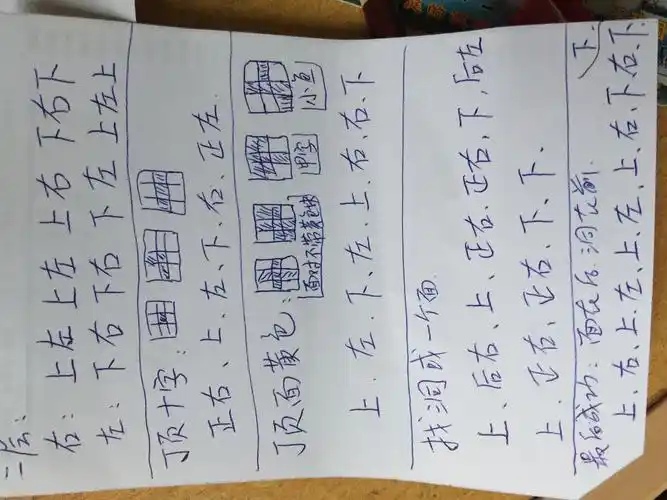 二层:
右: 上左 上左 上右 下右下
左: 下右下右 下左 上左上
顶十字:
正右、上、左、下、右、正左.
顶面黄色:
面对不带黄色块
甲字
小鱼
上、左、下、左、上、右、右、下
找洞或一个面.
上、后右、上、正右、正右、下、后左
上、正右、正右、下、下.
最后成功: 面在后.洞在前.
上、右、上、左、上、左、上、右、下右、下
下.